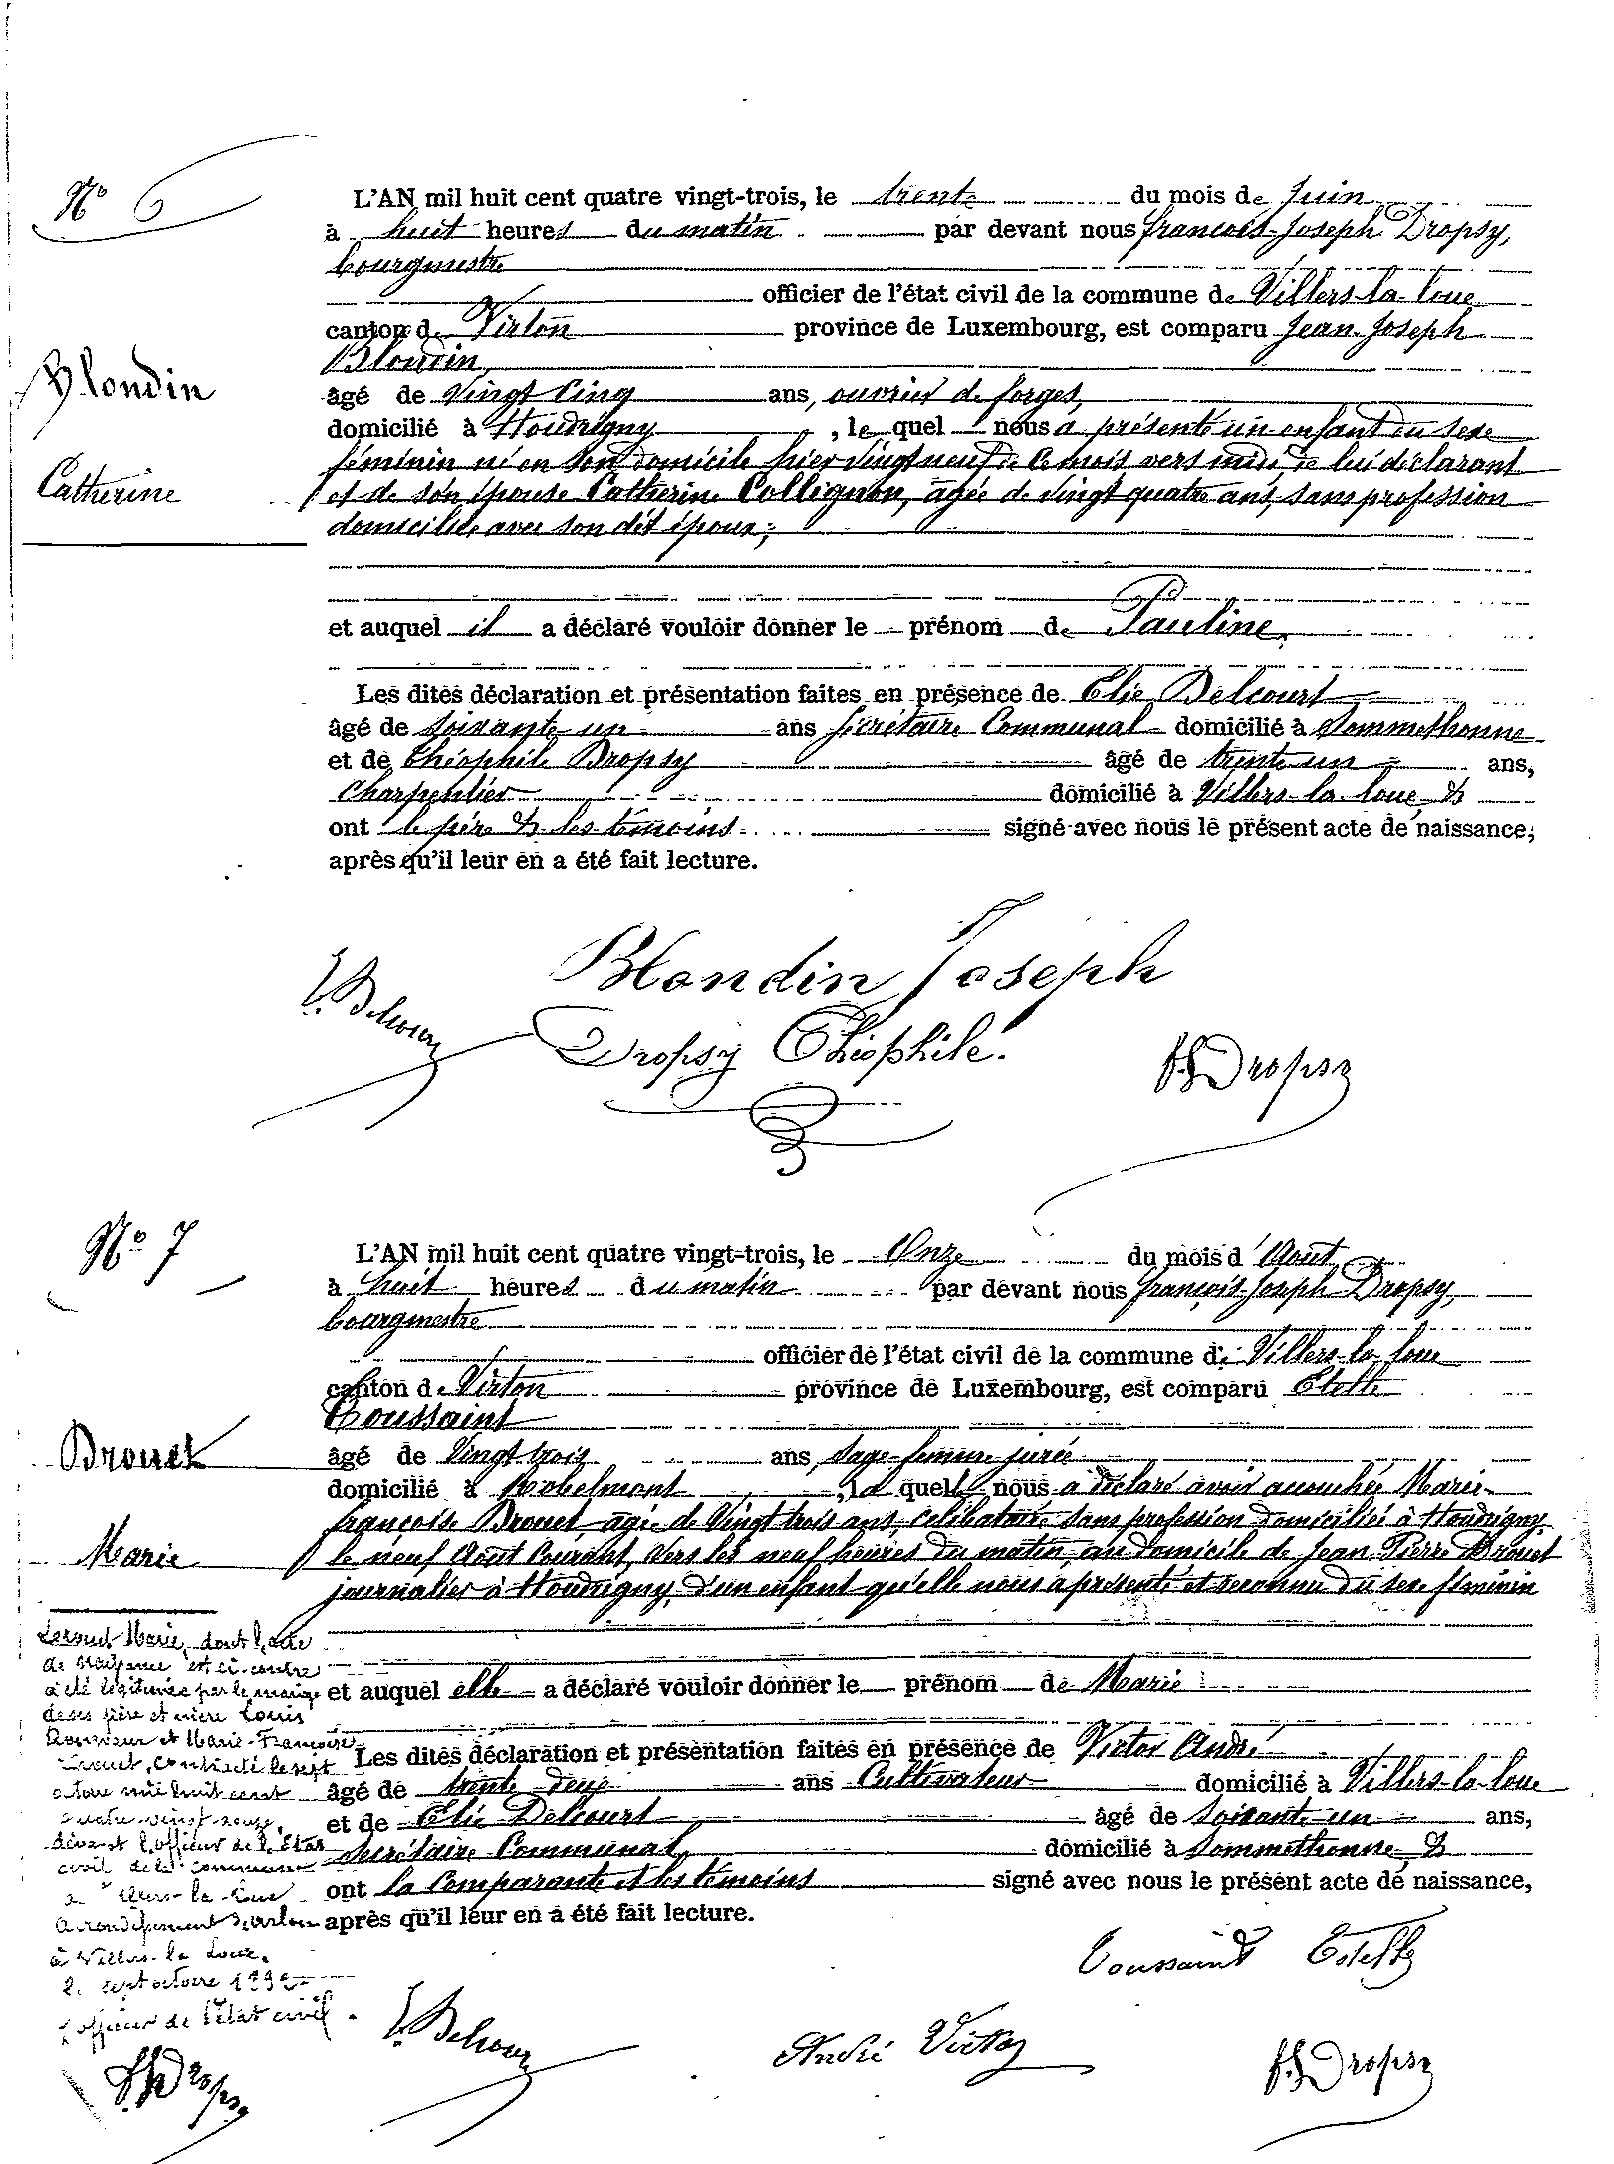 N° 6
L'AN mil huit cent quatre vingt-trois, le trente du mois de Juin
à huit heures du matin par devant nous francois-Joseph Dropsy,
bourgmestre
officier de l'état civil de la commune de Villers-la-loue
canton de Virton province de Luxembourg, est comparu Jean-Joseph
Blondin,
Blondin
âgé de Vingt Cinq ans, ouvrier de forges,
domicilié à Houdrigny, le quel nous a présenté un enfant du sexe
féminin né en son domicile hier vingt neuf de ce mois vers midi, de lui déclarant
Catherine
et de son épouse Catherine Collignon, agée de vingt quatre ans, sans profession
domiciliée avec son dit époux;
et auquel il a déclaré vouloir donner le prénom de Pauline,
Les dites déclaration et présentation faites en présence de Elie Delcourt
âgé de soixante un ans secrétaire Communal domicilié à Sommethonne
et de Théophile Dropsy âgé de trente un ans,
Charpentier domicilié à Villers-la-loue &
ont le père & les témoins signé avec nous le présent acte de naissance,
après qu'il leur en a été fait lecture.
Blondin Joseph
E. Delcourt
Dropsy Théophile.
f J Dropsy
N° 7
L'AN mil huit cent quatre vingt-trois, le Onze du mois d'Août
à huit heures du matin par devant nous françois-Joseph Dropsy,
bourgmestre
officier de l'état civil de la commune de Villers-la-loue
canton de Virton province de Luxembourg, est comparu Estelle
Toussaint
Brouet
âgé de Vingt trois ans, sage-femme jurée
domicilié à Robelmont, la quelle nous a déclaré avoir accouchée Marie-
françoise Brouet, agée de Vingt trois ans, célibataire sans profession domiciliée à Houdrigny,
Marie
le neuf Août Courant, vers les neuf heures du matin, au domicile de Jean-Pierre Brouet
journalier à Houdrigny, d'un enfant qu'elle nous a presenté et reconnu du sexe féminin
et auquel elle a déclaré vouloir donner le prénom de Marie
Les dites déclaration et présentation faites en présence de Victor André
âgé de trente-deux ans Cultivateur domicilié à Villers-la-loue
et de Elie Delcourt âgé de soixante un ans,
secrétaire Communal, domicilié à Sommethonne, &
ont la Comparante et les témoins signé avec nous le présent acte de naissance,
après qu'il leur en a été fait lecture.
Marie, dont l'acte
de naissance est ci-contre
a été légitimée par le mariage
de ses père et mère Louis
et Marie-Françoise
Brouet, contracté le sept
octobre mil huit cent
quatre-vingt
devant l'officier de l'Etat
civil de la commune
de Villers-la-Loue
arrondissement d'Arlon
à Villers-la Loue,
le sept octobre
l'officier de l'état civil.
f J Dropsy
Toussaint Estelle
E. Delcourt
André Victor
f J Dropsy